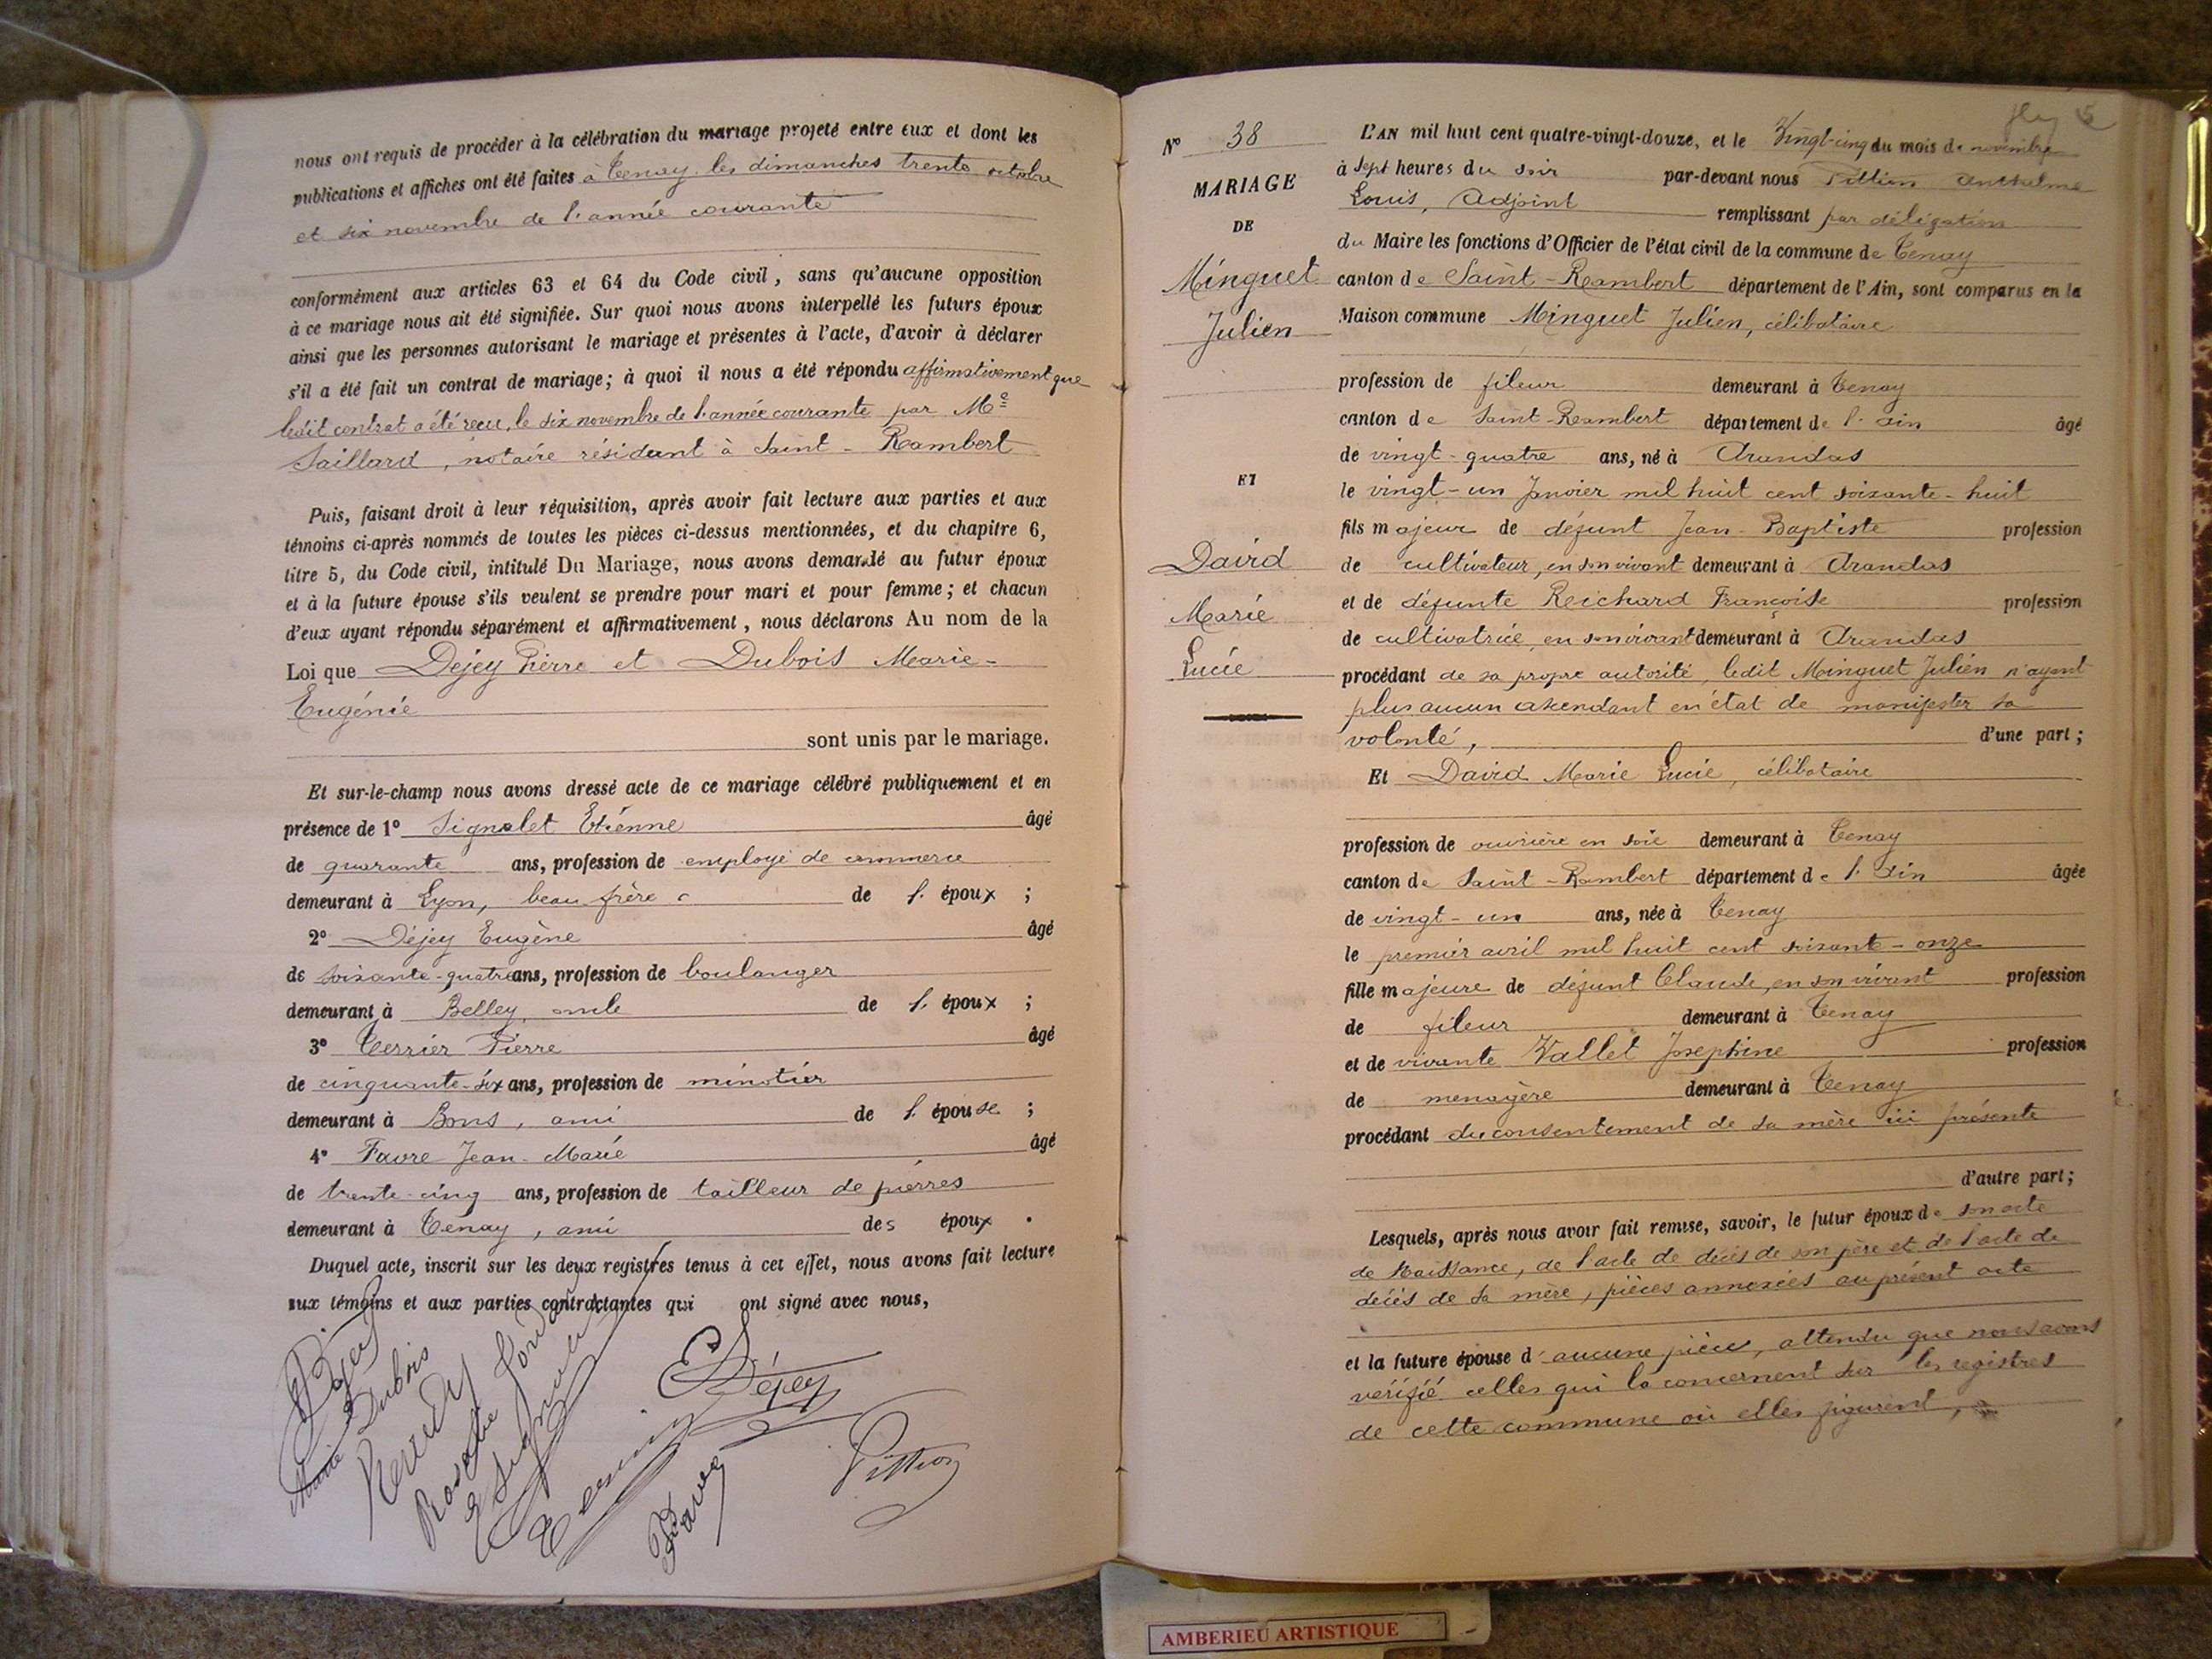 nous ont requis de procéder à la célébration du mariage projeté entre eux et dont les
publications et affiches ont été faites à Tenay, les dimanches trente octobre
et six novembre de l'année courante
conformément aux articles 63 et 64 du Code civil, sans qu'aucune opposition
à ce mariage nous ait été signifiée. Sur quoi nous avons interpellé les futurs époux
ainsi que les personnes autorisant le mariage et présentes à l'acte, d'avoir à déclarer
s'il a été fait un contrat de mariage; à quoi il nous a été répondu affirmativement que
ledit contrat a été reçu, le six novembre de l'année courante par Me
Saillard, notaire résidant à Saint-Rambert
Puis, faisant droit à leur réquisition, après avoir fait lecture aux parties et aux
témoins ci-après nommés de toutes les pièces ci-dessus mentionnées, et du chapitre 6,
titre 5, du Code civil, intitulé Du Mariage, nous avons demandé au futur époux
et à la future épouse s'ils veulent se prendre pour mari et pour femme; et chacun
d'eux ayant répondu séparément et affirmativement, nous déclarons Au nom de la
Loi que Dejey Pierre et Dubois Marie-
Eugénie
sont unis par le mariage.
Et sur-le-champ nous avons dressé acte de ce mariage célébré publiquement et en
présence de 1° Signalet Etienne âgé
de quarante ans, profession de employé de commerce
demeurant à Lyon, beau frère de l' époux ;
2° Déjey Eugène âgé
de soixante-quatre ans, profession de boulanger
demeurant à Belley, oncle de l' époux ;
3° Terrier Pierre âgé
de cinquante-six ans, profession de minotier
demeurant à Bons, ami de l' épouse ;
4° Favre Jean-Marie âgé
de trente-cinq ans, profession de tailleur de pierres
demeurant à Tenay, ami des époux .
Duquel acte, inscrit sur les deux registres tenus à cet effet, nous avons fait lecture
aux témoins et aux parties contractantes qui ont signé avec nous,
Marie Dubois
E Déjey
Favre
Pittion
N° 38
MARIAGE
DE
Minguet
Julien
ET
David
Marie
Lucie
L'AN mil huit cent quatre-vingt-douze, et le Vingt-cinq du mois de novembre
à sept heures du soir par-devant nous Pittion Anthelme
Louis, Adjoint remplissant par délégation
du Maire les fonctions d'Officier de l'état civil de la commune de Tenay
canton de Saint-Rambert département de l'Ain, sont comparus en la
Maison commune Minguet Julien, célibataire
profession de fileur demeurant à Tenay
canton de Saint-Rambert département de l'Ain âgé
de vingt-quatre ans, né à Arandas
le vingt-un Janvier mil huit cent soixante-huit
fils majeur de défunt Jean-Baptiste profession
de cultivateur, en son vivant demeurant à Arandas
et de défunte Reichard Françoise profession
de cultivatrice, en son vivant demeurant à Arandas
procédant de sa propre autorité, ledit Minguet Julien n'ayant
plus aucun ascendant en état de manifester sa
volonté, d'une part;
Et David Marie Lucie, célibataire
profession de ouvrière en soie demeurant à Tenay
canton de Saint-Rambert département de l'Ain âgée
de vingt-un ans, née à Tenay
le premier avril mil huit cent soixante-onze
fille majeure de défunt Claude, en son vivant profession
de fileur demeurant à Tenay
et de vivante Vallet Josephine profession
de menagère demeurant à Tenay
procédant du consentement de sa mère ici présente
d'autre part;
Lesquels, après nous avoir fait remise, savoir, le futur époux de son acte
de Naissance, de l'acte de décès de son père et de l'acte de
décès de sa mère, pièces annexées au présent acte
et la future épouse d'aucune pièce, attendu que nous avons
vérifié celles qui la concernent sur les registres
de cette commune où elles figurent,
AMBERIEU ARTISTIQUE